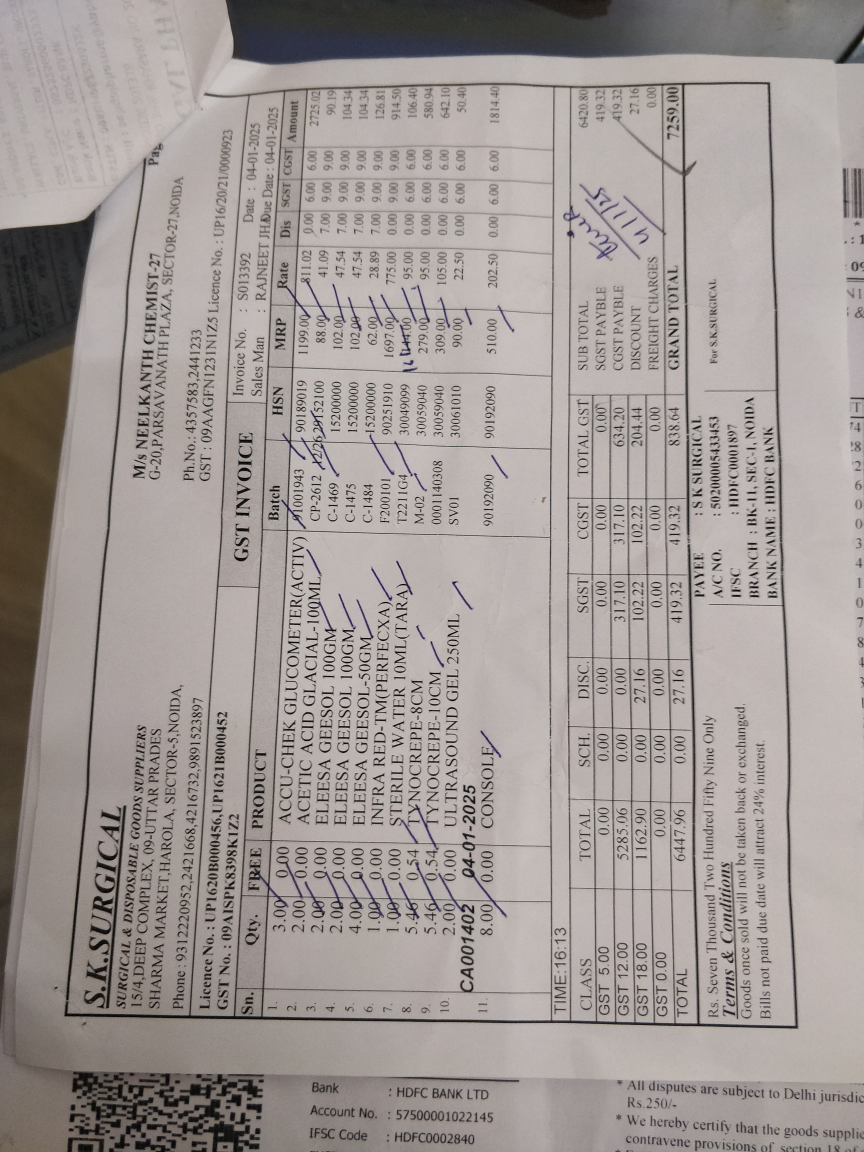 S.K.SURGICAL
SURGICAL & DISPOSABLE GOODS SUPPLIERS
15/4,DEEP COMPLEX, 09-UTTAR PRADES
SHARMA MARKET,HAROLA, SECTOR-5,NOIDA,
Phone : 9312220952,2421668,4216732,9891523897
Licence No. : UP1620B000456,UP1621B000452
GST No. : 09AISPK8398K1Z2
M/s NEELKANTH CHEMIST-27
G-20,PARSAVANATH PLAZA, SECTOR-27,NOIDA
Ph.No.: 4357583,2441233
GST : 09AAGFN1231N1Z5 Licence No. : UP16/20/21/0000923
GST INVOICE
Invoice No. : S013392 Date : 04-01-2025
Sales Man : RAJNEET JHA Due Date : 04-01-2025
Sn. Qty. FREE PRODUCT Batch HSN MRP Rate Dis SGST CGST Amount
1. 3.00 0.00 ACCU-CHEK GLUCOMETER(ACTIV) 91001943 90189019 1199.00 811.02 0.00 6.00 6.00 2725.02
2. 2.00 0.00 ACETIC ACID GLACIAL-100ML CP-2612 12/26 29152100 88.00 41.09 7.00 9.00 9.00 90.19
3. 2.00 0.00 ELEESA GEESOL 100GM C-1469 15200000 102.00 47.54 7.00 9.00 9.00 104.34
4. 2.00 0.00 ELEESA GEESOL 100GM C-1475 15200000 102.00 47.54 7.00 9.00 9.00 104.34
5. 4.00 0.00 ELEESA GEESOL-50GM C-1484 15200000 62.00 28.89 7.00 9.00 9.00 126.81
6. 1.00 0.00 INFRA RED-TM(PERFECXA) F200101 90251910 1697.00 775.00 0.00 9.00 9.00 914.50
7. 1.00 0.00 STERILE WATER 10ML(TARA) T2211G4 30049099 95.00 0.00 6.00 6.00 106.40
8. 5.46 0.54 TYNOCREPE-8CM M-02 30059040 279.00 95.00 0.00 6.00 6.00 580.94
9. 5.46 0.54 TYNOCREPE-10CM 0001140308 30059040 309.00 105.00 0.00 6.00 6.00 642.10
10. 2.00 0.00 ULTRASOUND GEL 250ML SV01 30061010 90.00 22.50 0.00 6.00 6.00 50.40
CA001402 04-01-2025
11. 8.00 0.00 CONSOLE 90192090 90192090 510.00 202.50 0.00 6.00 6.00 1814.40
TIME:16:13
CLASS TOTAL SCH. DISC. SGST CGST TOTAL GST
GST 5.00 0.00 0.00 0.00 0.00 0.00 0.00
GST 12.00 5285.06 0.00 0.00 317.10 317.10 634.20
GST 18.00 1162.90 0.00 27.16 102.22 102.22 204.44
GST 0.00 0.00 0.00 0.00 0.00 0.00 0.00
TOTAL 6447.96 0.00 27.16 419.32 419.32 838.64
SUB TOTAL 6420.80
SGST PAYBLE 419.32
CGST PAYBLE 419.32
DISCOUNT 27.16
FREIGHT CHARGES 0.00
GRAND TOTAL 7259.00
4/1/25
Rs. Seven Thousand Two Hundred Fifty Nine Only
Terms & Conditions
Goods once sold will not be taken back or exchanged.
Bills not paid due date will attract 24% interest.
PAYEE : S K SURGICAL
A/C NO. : 50200005433453
IFSC : HDFC0001897
BRANCH : BK-11, SEC-1, NOIDA
BANK NAME : HDFC BANK
For S.K.SURGICAL
Bank : HDFC BANK LTD
Account No. : 57500001022145
IFSC Code : HDFC0002840
* All disputes are subject to Delhi jurisdic
Rs.250/-
* We hereby certify that the goods supplie
contravene provisions of section 18 of